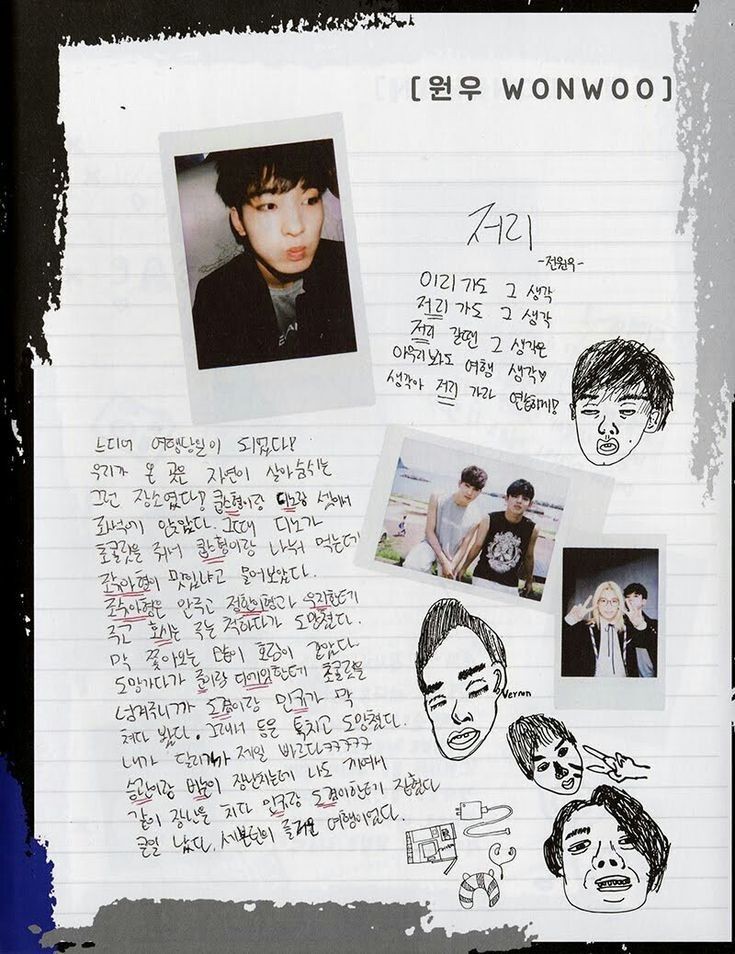 [원우 WONWOO]
저리
-전원우-
이리 가도 그 생각
저리 가도 그 생각
저리 갈땐 그 생각은
아무리봐도 여행 생각♡
생각아 저리 가라 연습하게!
느디어 여행당일이 되었다!
우리가 온 곳은 자연이 살아숨쉬는
그런 장소였다! 쿱스형이랑 디노랑 셋에서
앉았다. 그때 디노가
초콜릿을 줘서 쿱스형이랑 나눠 먹는데
조슈아형이 맛있냐고 물어보았다.
조슈아형은 안주고 정한이형과 우지한테
주고 호시는 주는 척하다가 도망쳤다.
막 쫓아오는 호랑이 같았다.
도망가다가 준이랑 디에잇한테 초콜릿을
넘겨주니까 도겸이랑 민규가 막
쳐다 봤다. 그래서 등을 툭치고 도망쳤다.
내가 달리기가 제일 빠르다ㅋㅋㅋㅋㅋ
승관이랑 버논이 장난치는데 나도 끼여서
같이 장난을 치다 민규랑 도겸이한테 잡혔다
큰일 났다. 세븐틴의 즐거운 여행이었다.
Vernon